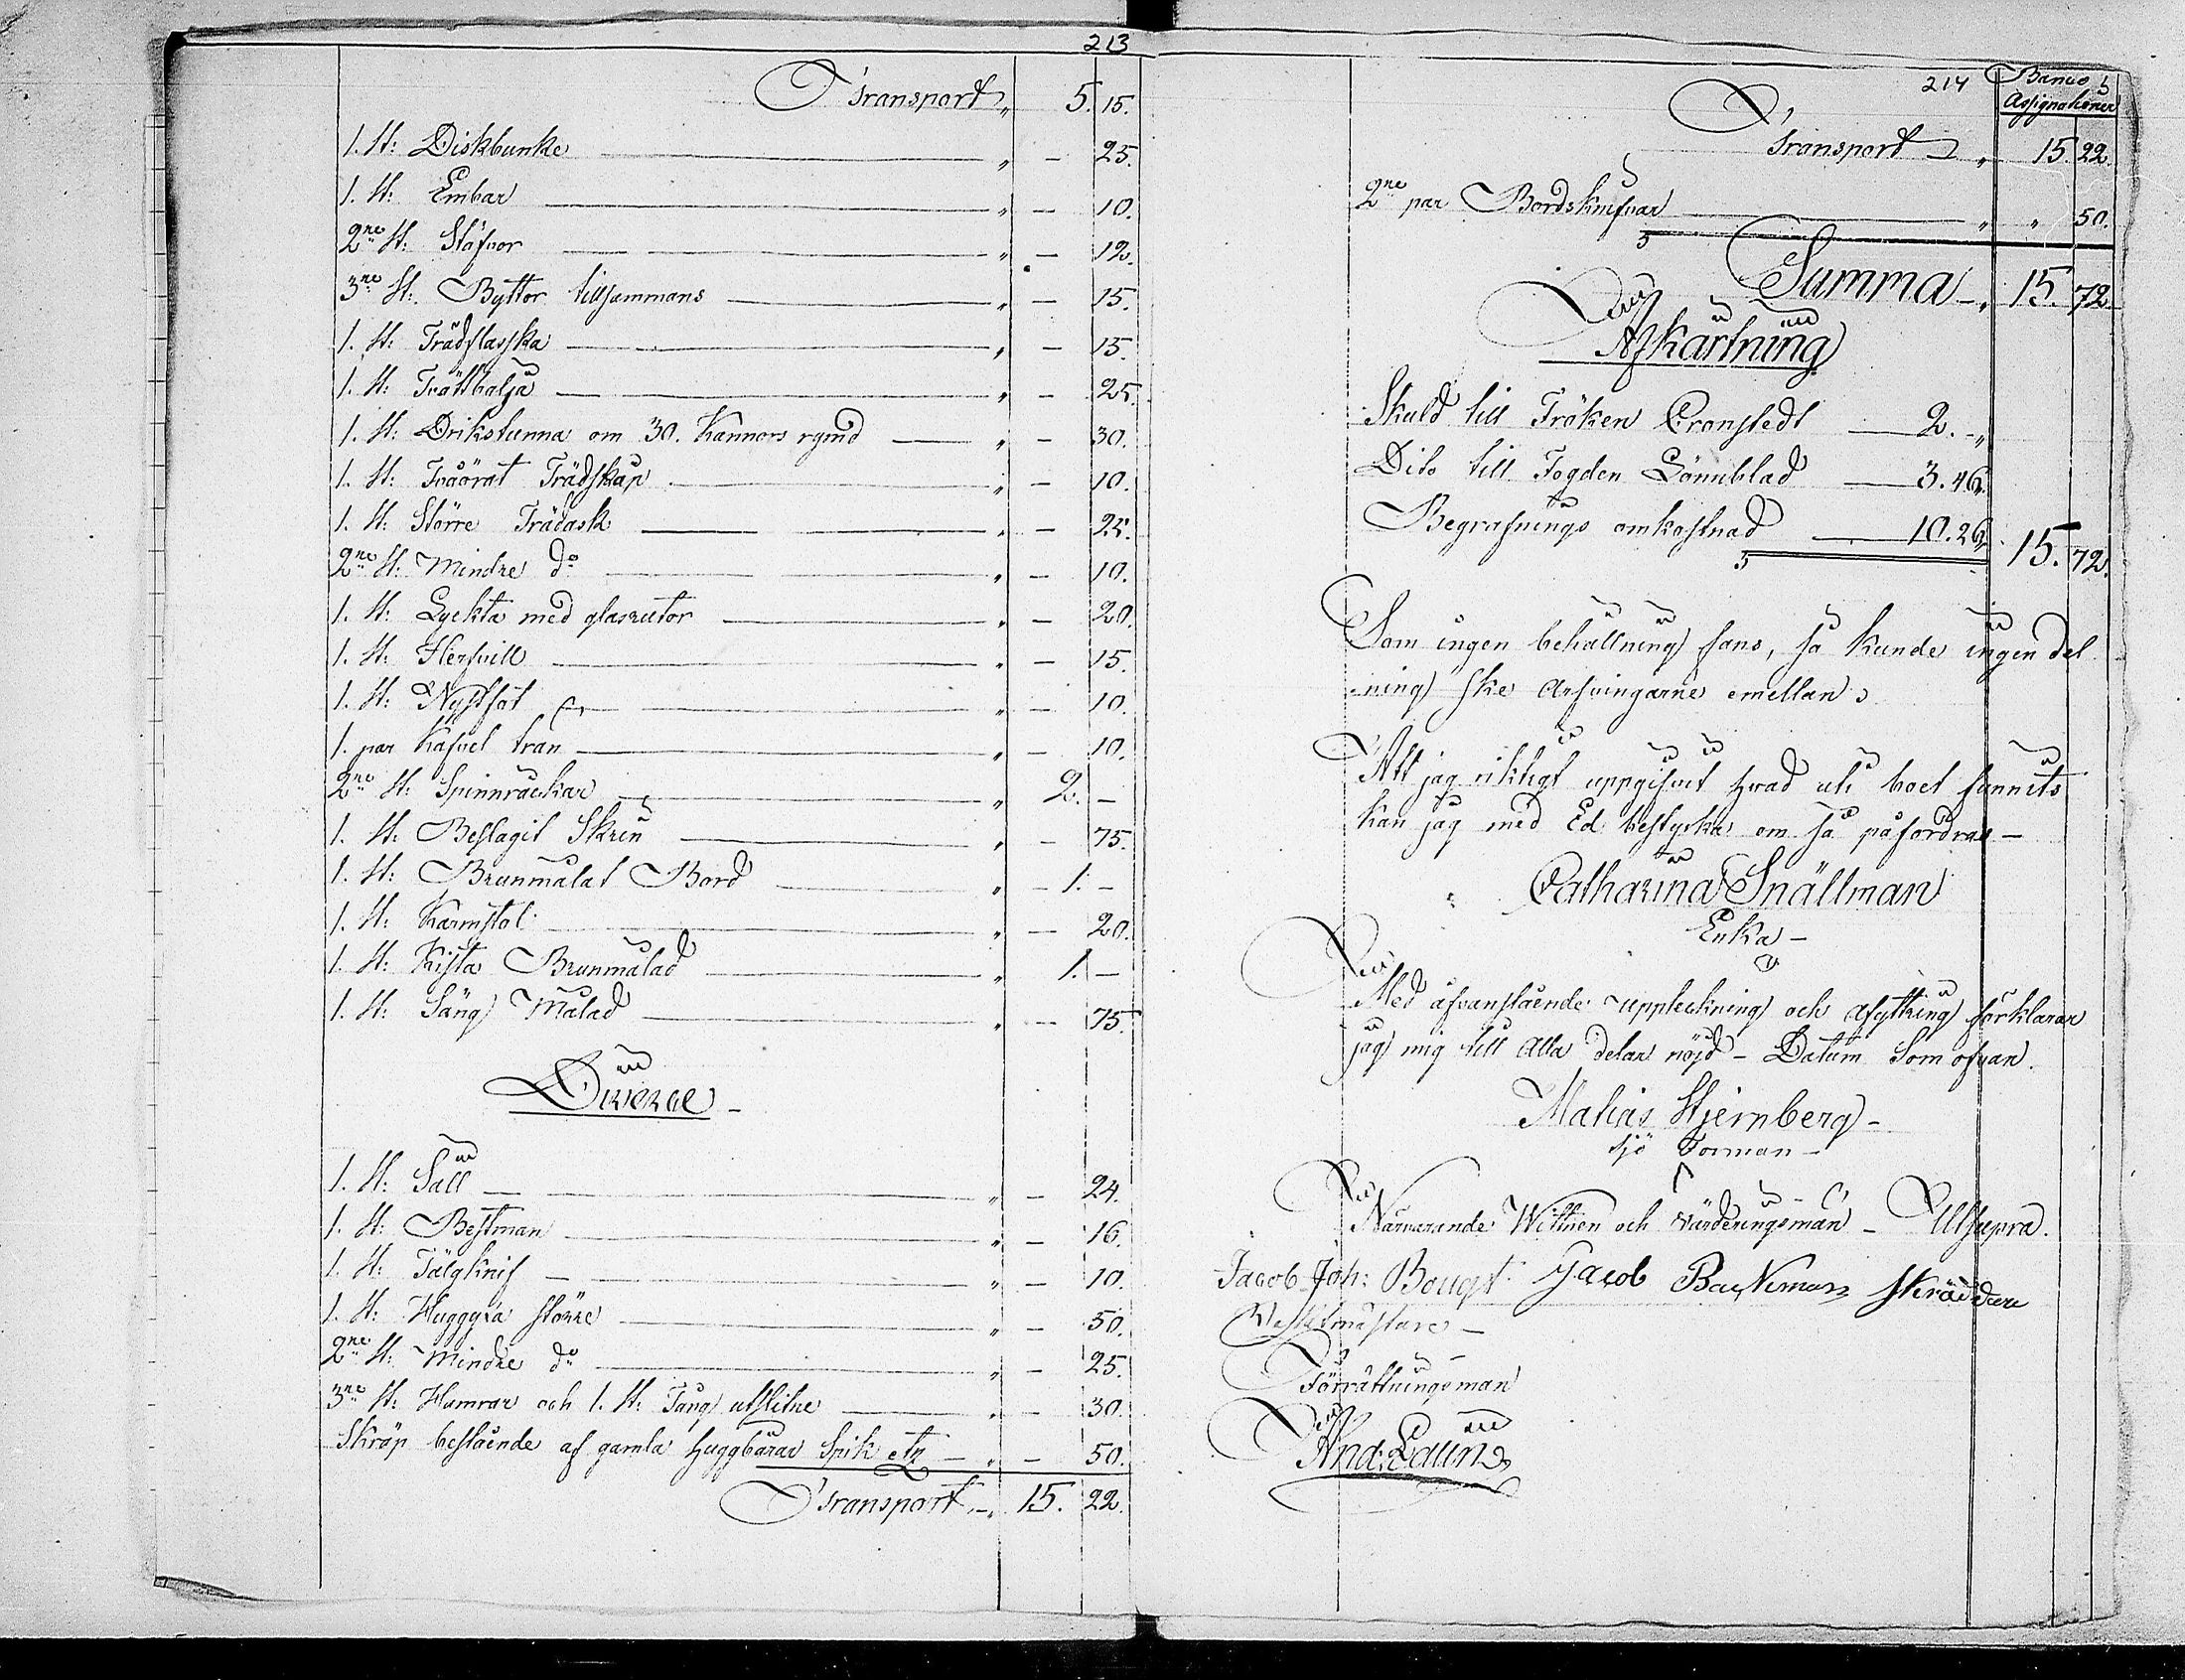 213
Transport „ 5. 15.
1. St: Diskbunke „ — 25.
1. St: Embar „ — 10.
2ne St: Stäfvor „ — 12.
3ne St: Byttor tillsammans „ — 15.
1. St: Trädflasska „ — 15.
1. St: Tvättbalja „ — 25.
1. St: Drikstunna om 30. Kannors rymd „ — 30.
1. St: Tvåörat Trädskap „ — 10.
1. St: Större Trädask „ — 25.
2ne St: Mindre do „ — 10.
1. St: Lyckta med glasrutor „ — 20.
1. St: Herfvill „ — 15.
1. St: Nystfot „ — 10.
1. par Kafvel trän „ — 10.
2ne St: Spinnråckar „ 2. —
1. St: Beslagit Skrin „ — 75.
1. St: Brunmålat Bord „ 1. —
1. St: Karmstol „ — 20.
1. St: Kista Brunmålad „ 1. —
1. St: Säng Målad „ — 75.
Diverse —
1. St: Såll „ — 24.
1. St: Bestman „ — 16.
1. St: Tälgknif „ — 10.
1. St: Huggyxa större „ — 50.
2ne St: Mindre do „ — 25.
3ne St: Hamrar och 1. St: Tång utslitne „ — 30.
Skräp bestående af gamla huggbärar Spik etc „ — 50.
Transport „ 15. 22.
214
Banco
Assignationer
Transport „ 15. 22.
2ne par Bordsknifvar „ „ 50.
Summa „ 15. 72.
Afkärtning
Skuld till Fröken Cronstedt 2. „
Dito till Fogden Lönnblad 3. 46.
Begrafnings omkostnad 10. 26. 15. 72.
Som ingen behållning fans, så kunde ingen del
ning ske Arfvingarne emellan
Att jag riktigt uppgifvit hvad uti boet funnits
kan jag med Ed bestyrka om så påfordras —
Catharina Snällman
Enka —
Med åfvanstående uppteckning och Afyttring förklarar
jag mig till Alla delar nöjd — Datum Som ofvan.
Matias Stjernberg —
Sjö Forman —
Närvarande Wittnen och värderingsmän — Utsupra.
Jacob Joh: Bougt Jacob Backman Skräddare
Förrättningsman